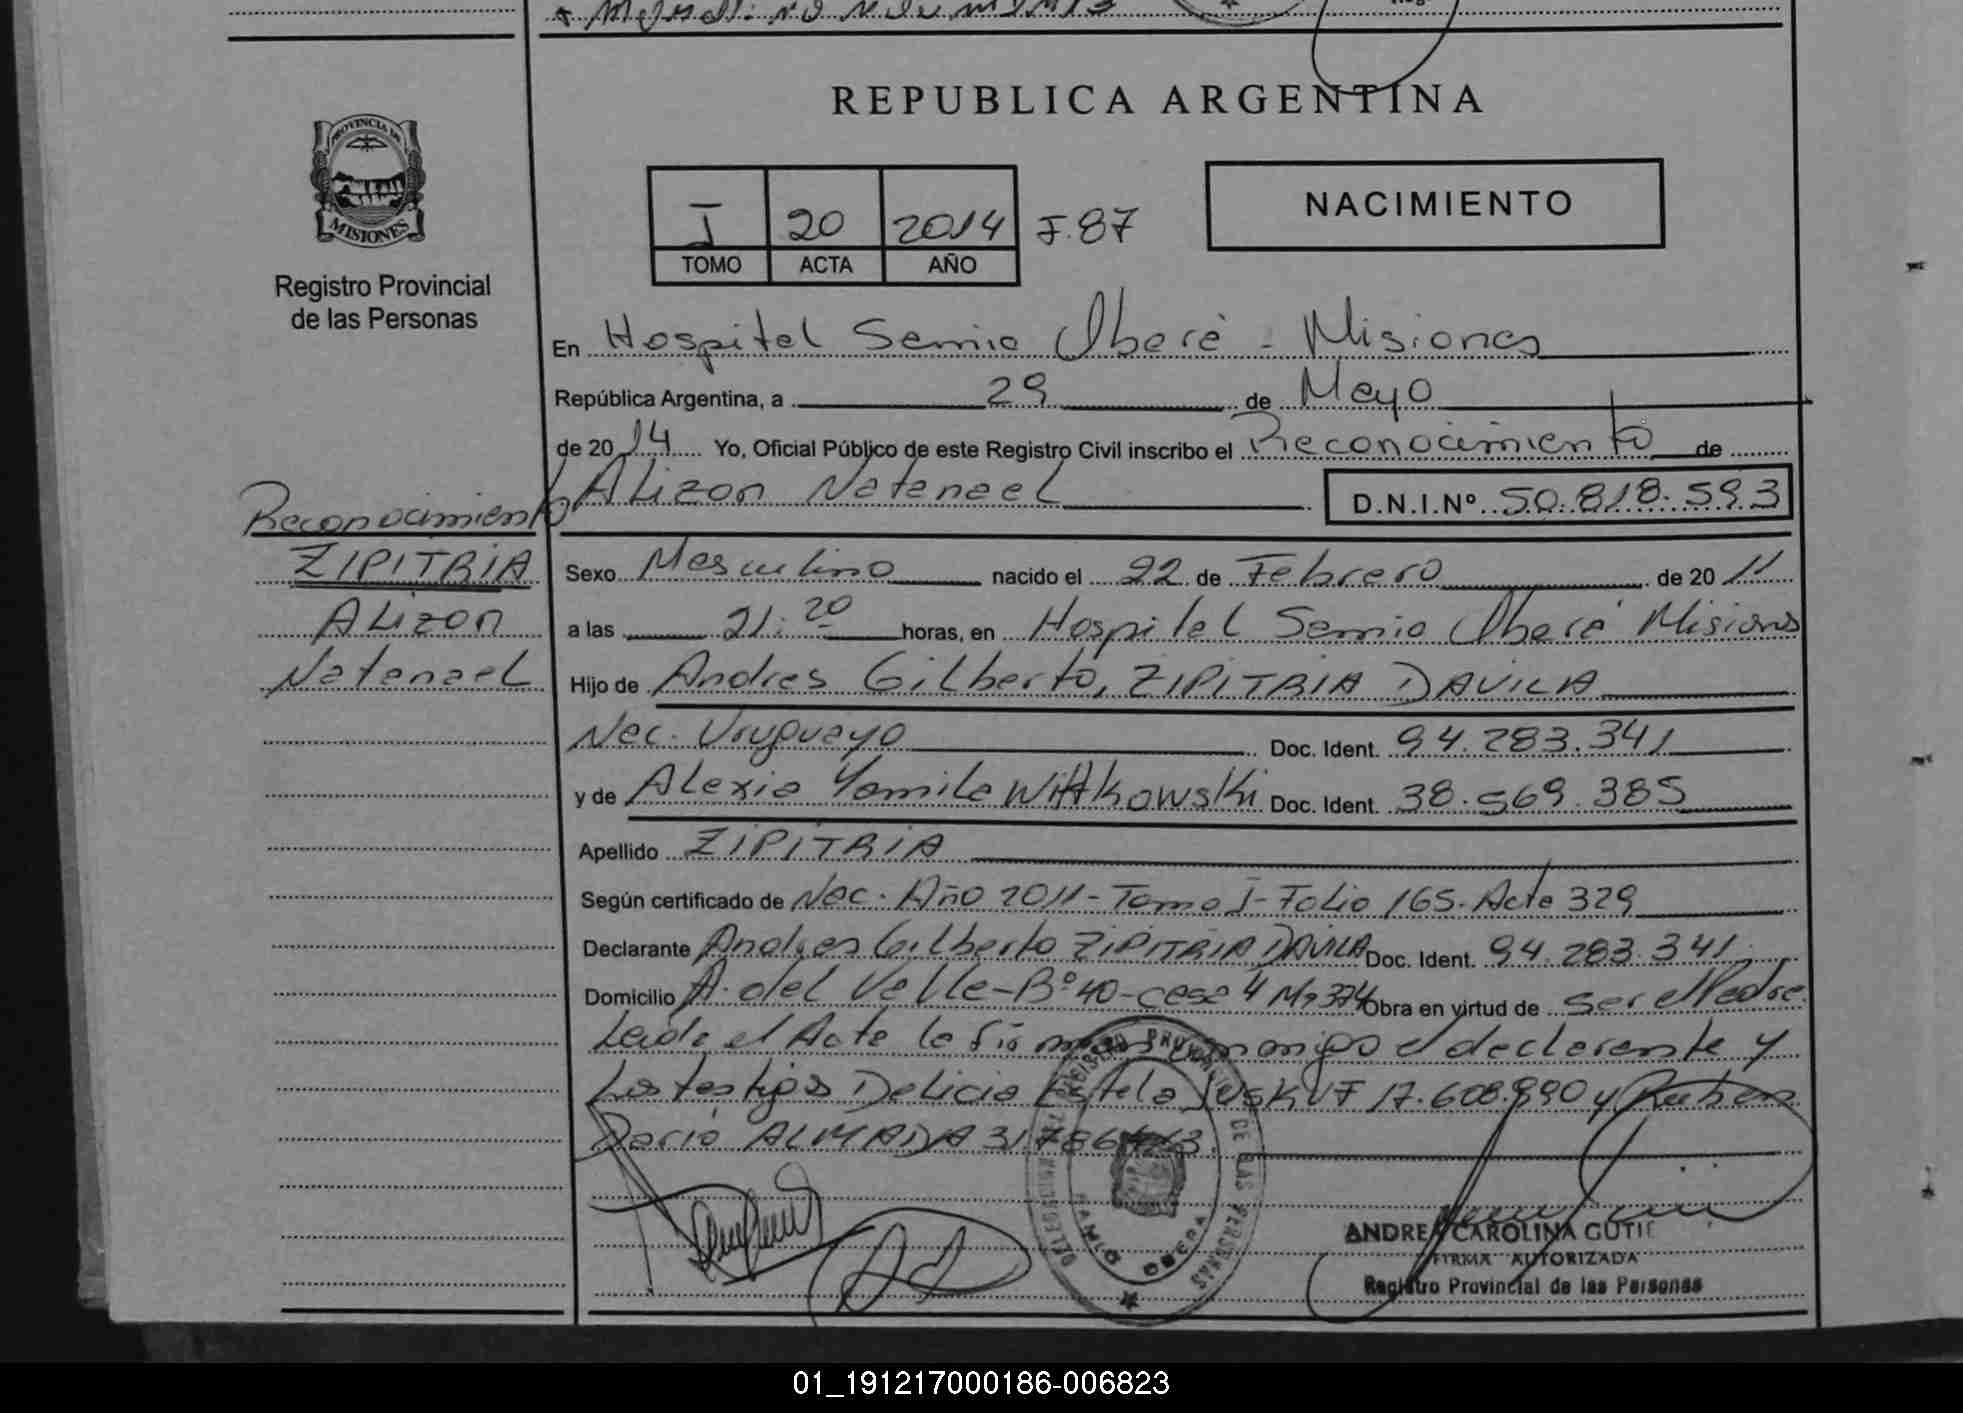 REPUBLICA ARGENTINA
PROVINCIA DE
MISIONES
Registro Provincial
de las Personas
I 20 2014 F.87
TOMO ACTA AÑO
NACIMIENTO
En Hospital Samic Oberá - Misiones
República Argentina, a 29 de Mayo
de 2014 Yo, Oficial Público de este Registro Civil inscribo el Reconocimiento de
Alizon Natanael D.N.I.Nº 50.818.593
Reconocimiento
ZIPITRIA
Alizon
Natanael
Sexo Masculino nacido el 22 de Febrero de 2011
a las 21:20 horas, en Hospital Samic Oberá Misiones
Hijo de Andres Gilberto, ZIPITRIA DAVILA
Nac. Uruguayo Doc. Ident. 94.283.341
y de Alexia Yamila Wittkowski Doc. Ident. 38.569.385
Apellido ZIPITRIA
Según certificado de Nac. Año 2011 - Tomo I - Folio 165. Acta 329
Declarante Andres Gilberto ZIPITRIA DAVILA Doc. Ident. 94.283.341
Domicilio A. del Valle - Bº 40 - casa 4 Mz 374 Obra en virtud de ser el Padre
Leida el Acta la firman conmigo el declarante y
Los testigos Delicia Estela 17.608.990 y Ruben
Dario ALMADA
REGISTRO PROVINCIAL DE LAS PERSONAS
OBERA
ANDREA CAROLINA GUTIE
FIRMA AUTORIZADA
Registro Provincial de las Personas
01_191217000186-006823